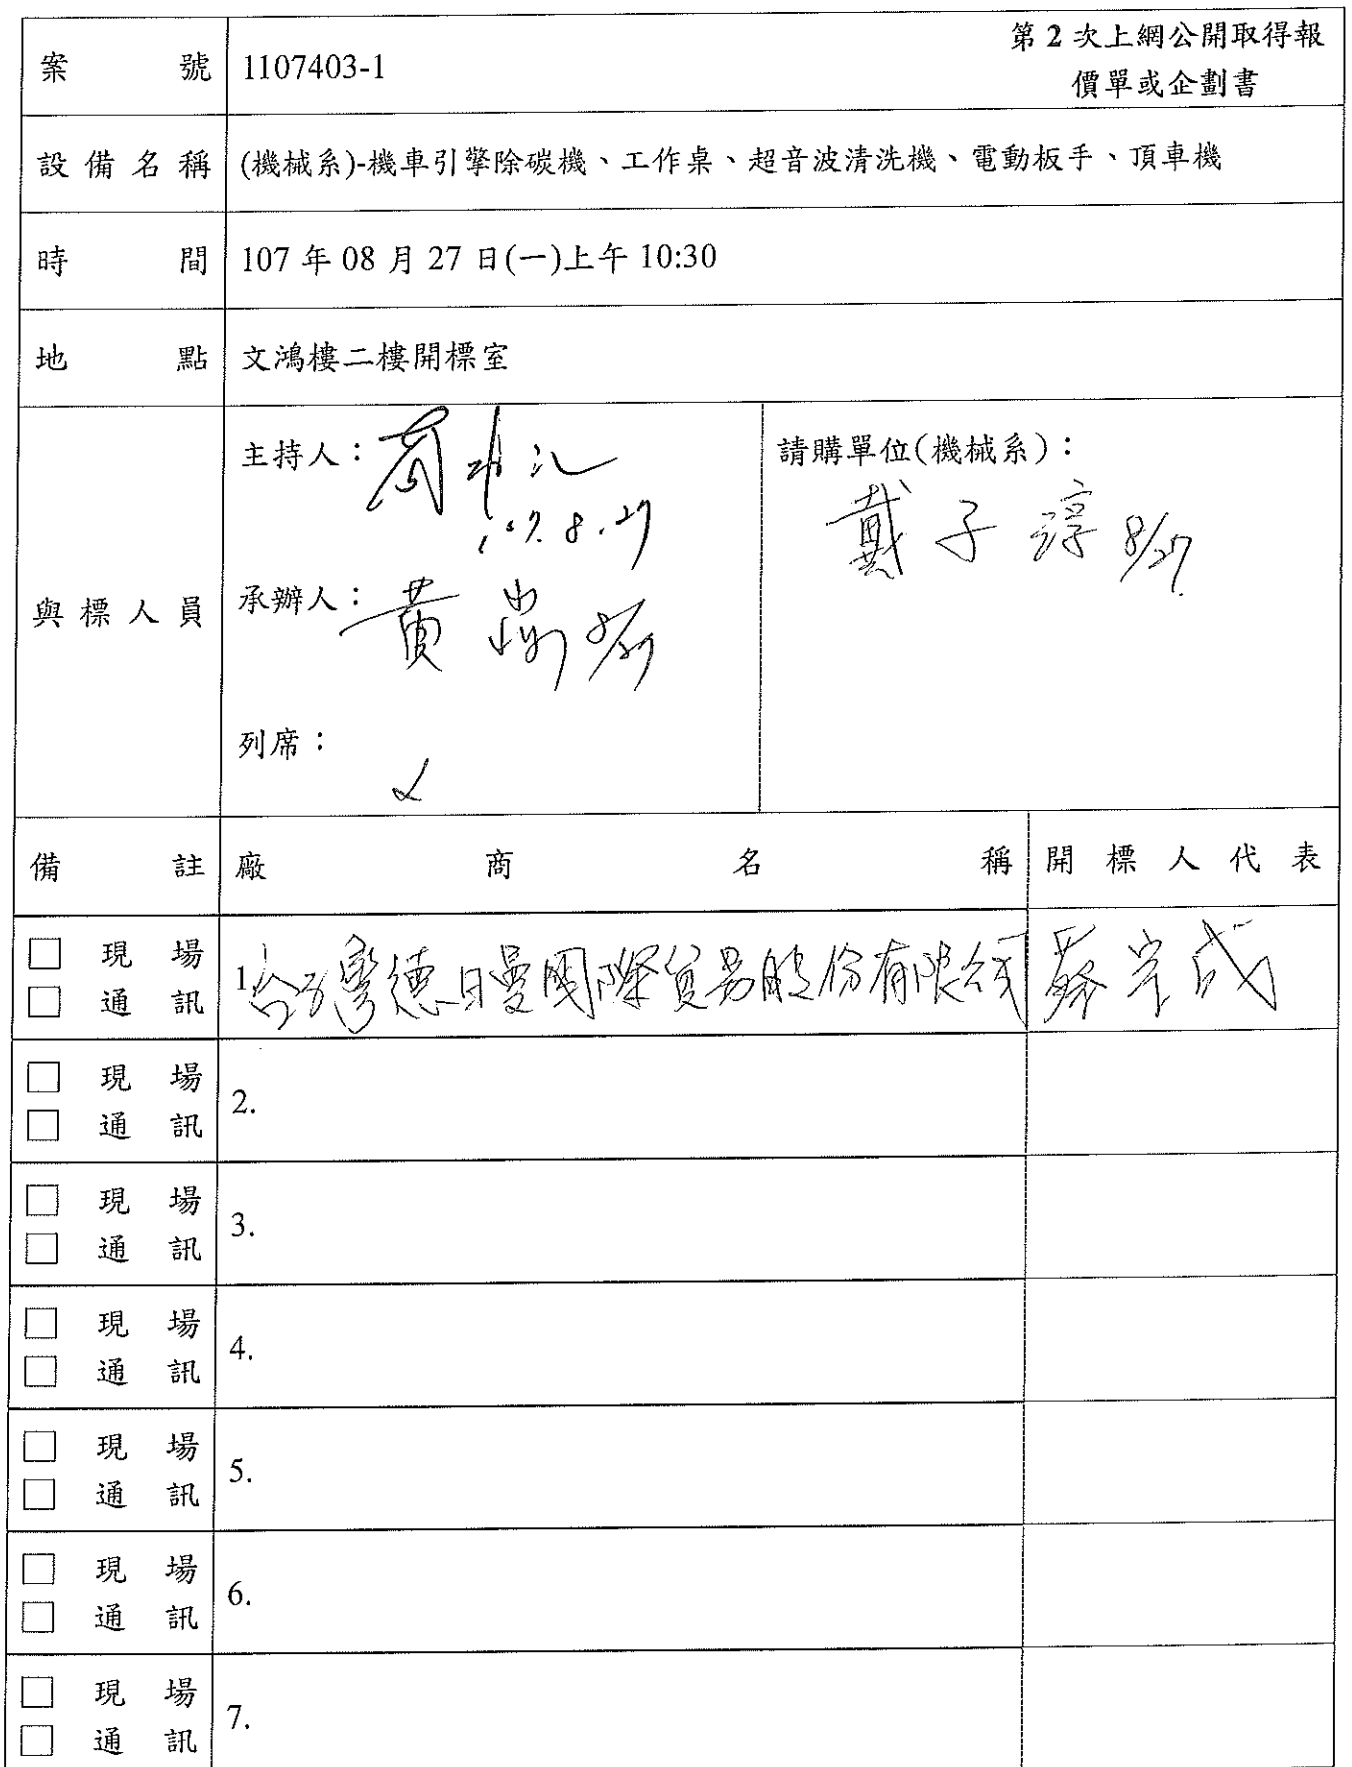 案號 1107403-1 第 2 次上網公開取得報
價單或企劃書
設備名稱 (機械系)-機車引擎除碳機、工作桌、超音波清洗機、電動板手、頂車機
時間 107 年 08 月 27 日(一)上午 10:30
地點 文鴻樓二樓開標室
與標人員
主持人：
107.8.27
承辦人：黃
列席：
請購單位(機械系)：
戴子淳 8/27
備註 廠商名稱 開標人代表
□ 現場
□ 通訊
1. 台灣德日曼國際貿易股份有限公司 蔡岸成
□ 現場
□ 通訊
2.
□ 現場
□ 通訊
3.
□ 現場
□ 通訊
4.
□ 現場
□ 通訊
5.
□ 現場
□ 通訊
6.
□ 現場
□ 通訊
7.